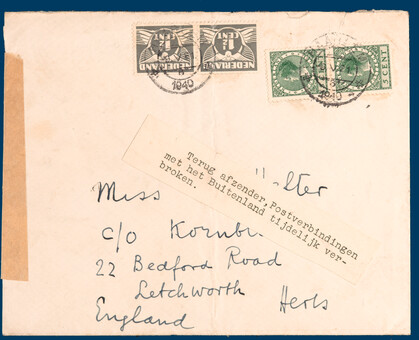 ½ CENT
NEDERLAND
½ CENT
NEDERLAND
1940
5 CENT
1940
Terug afzender, Postverbindingen
met het Buitenland tijdelijk ver-
broken.
Miss
c/o
22 Bedford Road
Letchworth Herts
England